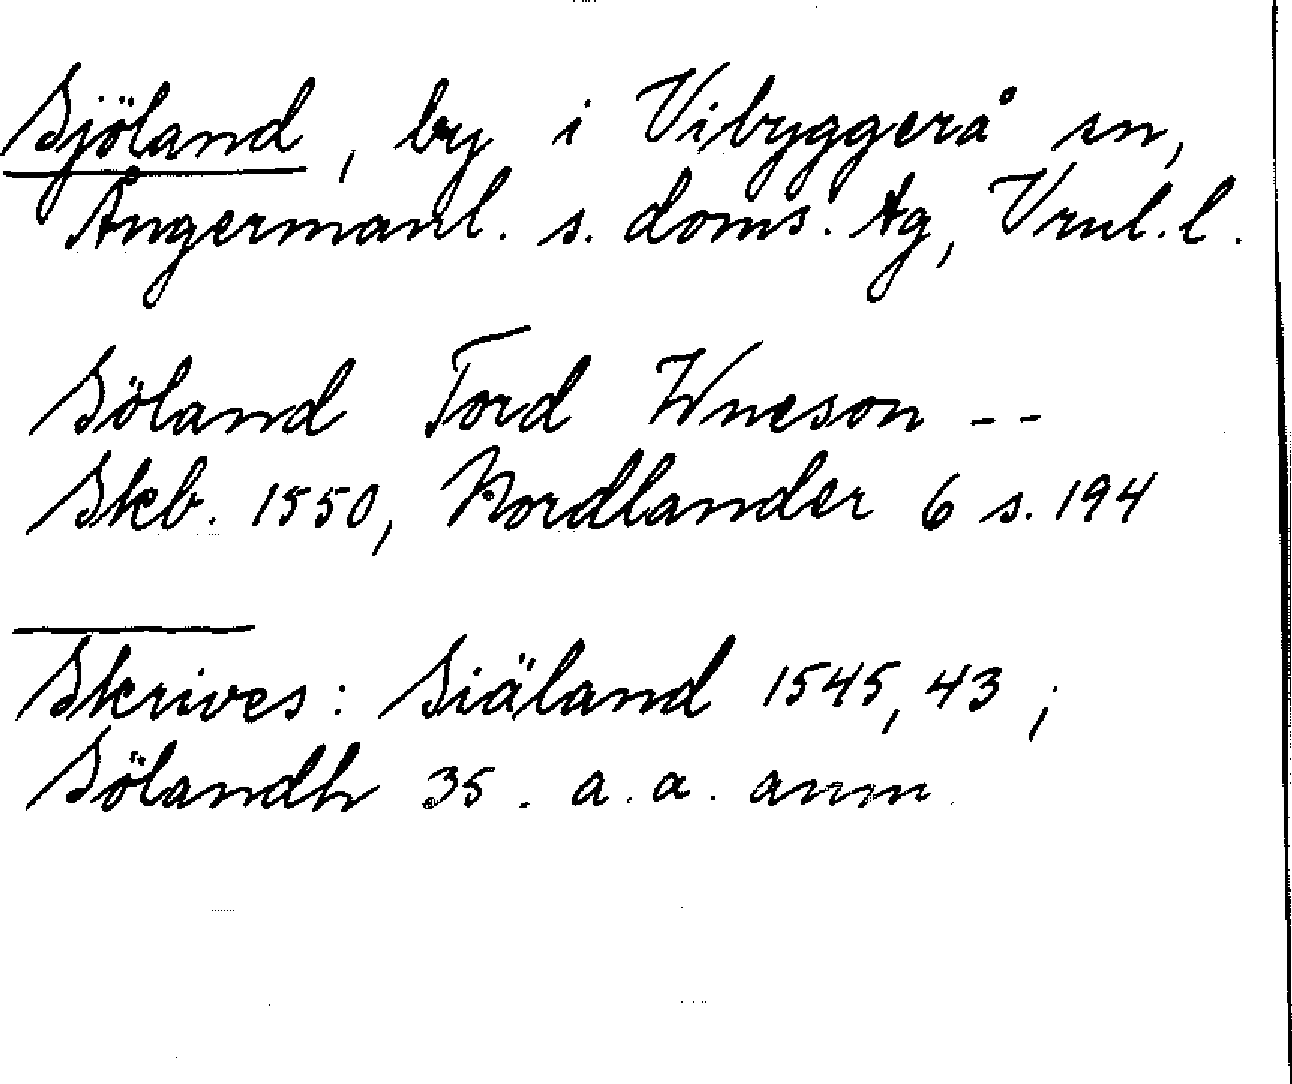 Sjöland, by i Vibyggerå sn,
Ångermanl. s. doms. tg, Vrnl. l.
Söland Tord Wneson --
Skb. 1550, Nordlander 6 s. 194
Skrives: Siäland 1545, 43;
Sölandh 35. a. a. anm.